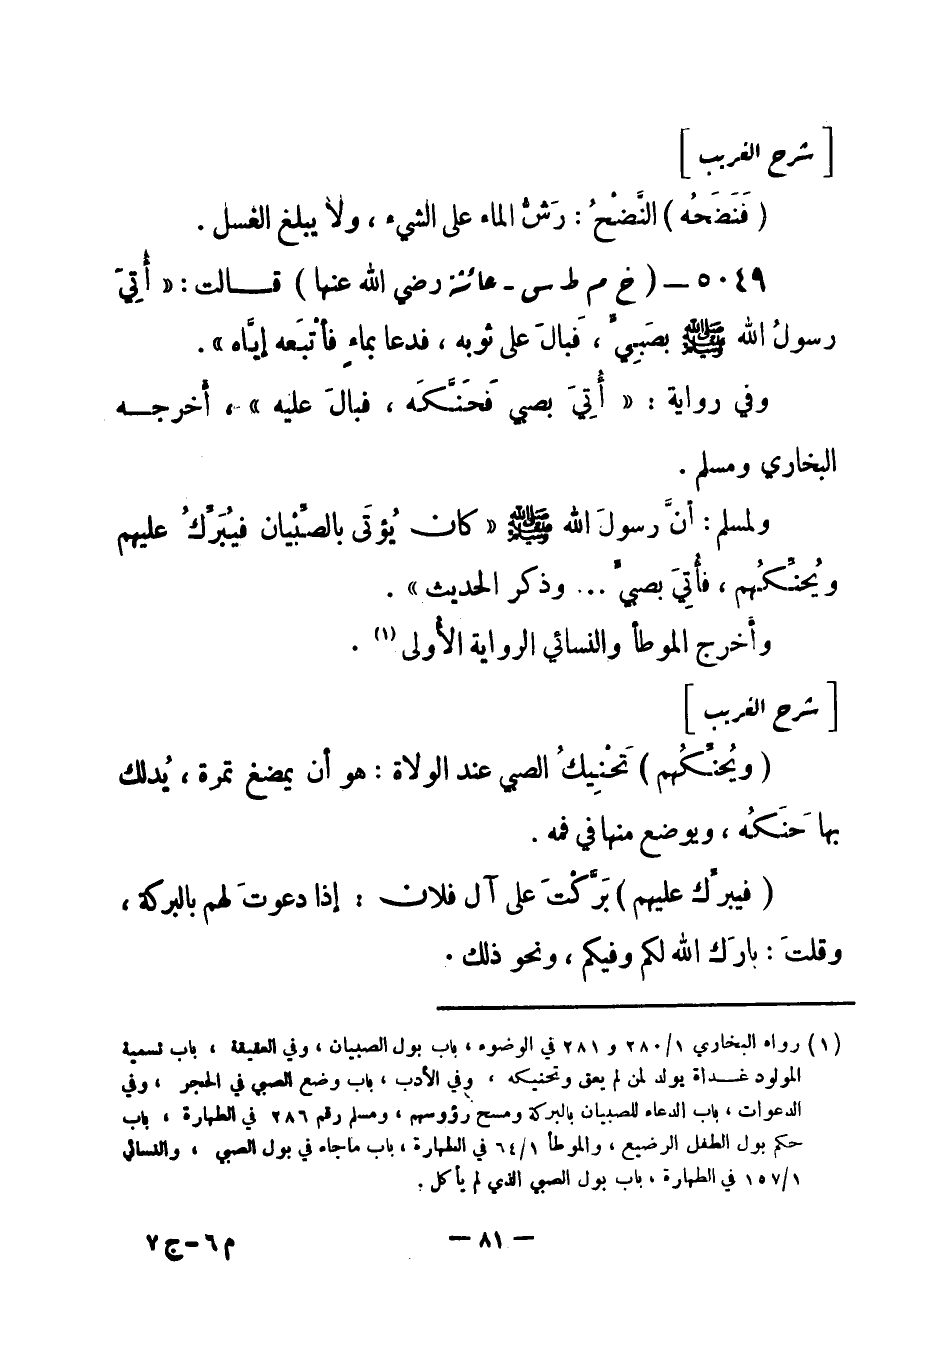 [ شرح الغريب ]
( فَنَضَحُه ) النَّضْحُ : رَشُّ الماء على الشيء ، ولا يبلغ الغسل .
٥٠٤٩ – ( خ م ط س - عائشة رضي الله عنها ) قالت : « أُتِيَ
رسولُ الله ﷺ بصَبِيٍّ ، فَبالَ على ثوبه ، فدعا بماءٍ فأتْبَعه إيَّاه » .
وفي رواية : « أُتِيَ بصبي فَحَنَّكَه ، فبالَ عليه » ، أخرجه
البخاري ومسلم .
ولمسلم : أنَّ رسولَ الله ﷺ « كان يُؤتَى بالصِّبْيان فيُبَرِّكُ عليهم
ويُحنِّكُهم ، فأُتِيَ بصبيٍّ ... وذكر الحديث » .
وأخرج الموطأ والنسائي الرواية الأولى (١) .
[ شرح الغريب ]
( ويُحنِّكُهم ) تَحْنِيكُ الصبي عند الولاة : هو أن يمضغ تمرة ، يُدلك
بها حَنَكُه ، ويوضع منها في فمه .
( فيبرِّك عليهم ) بَرَّكْتَ على آل فلان : إذا دعوتَ لهم بالبركة ،
وقلتَ : بارَك الله لكم وفيكم ، ونحو ذلك .
(١) رواه البخاري ٢٨٠/١ و ٢٨١ في الوضوء ، باب بول الصبيان ، وفي العقيقة ، باب تسمية
المولود غداة يولد لمن لم يعق وتحنيكه ، وفي الأدب ، باب وضع الصبي في الحجر ، وفي
الدعوات ، باب الدعاء للصبيان بالبركة ومسح رؤوسهم ، ومسلم رقم ٢٨٦ في الطهارة ، باب
حكم بول الطفل الرضيع ، والموطأ ٦٤/١ في الطهارة ، باب ماجاء في بول الصبي ، والنسائي
١٥٧/١ في الطهارة ، باب بول الصبي الذي لم يأكل .
– ٨١ –
م ٦ – ج ٧